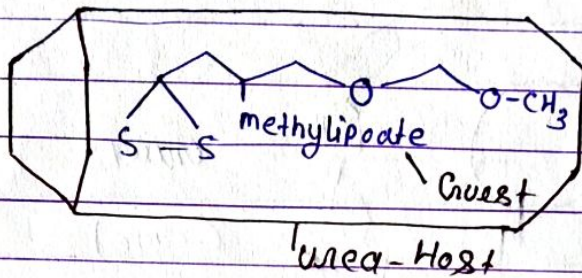 O
O-CH3
S - S
methylipoate
Guest
urea-Host